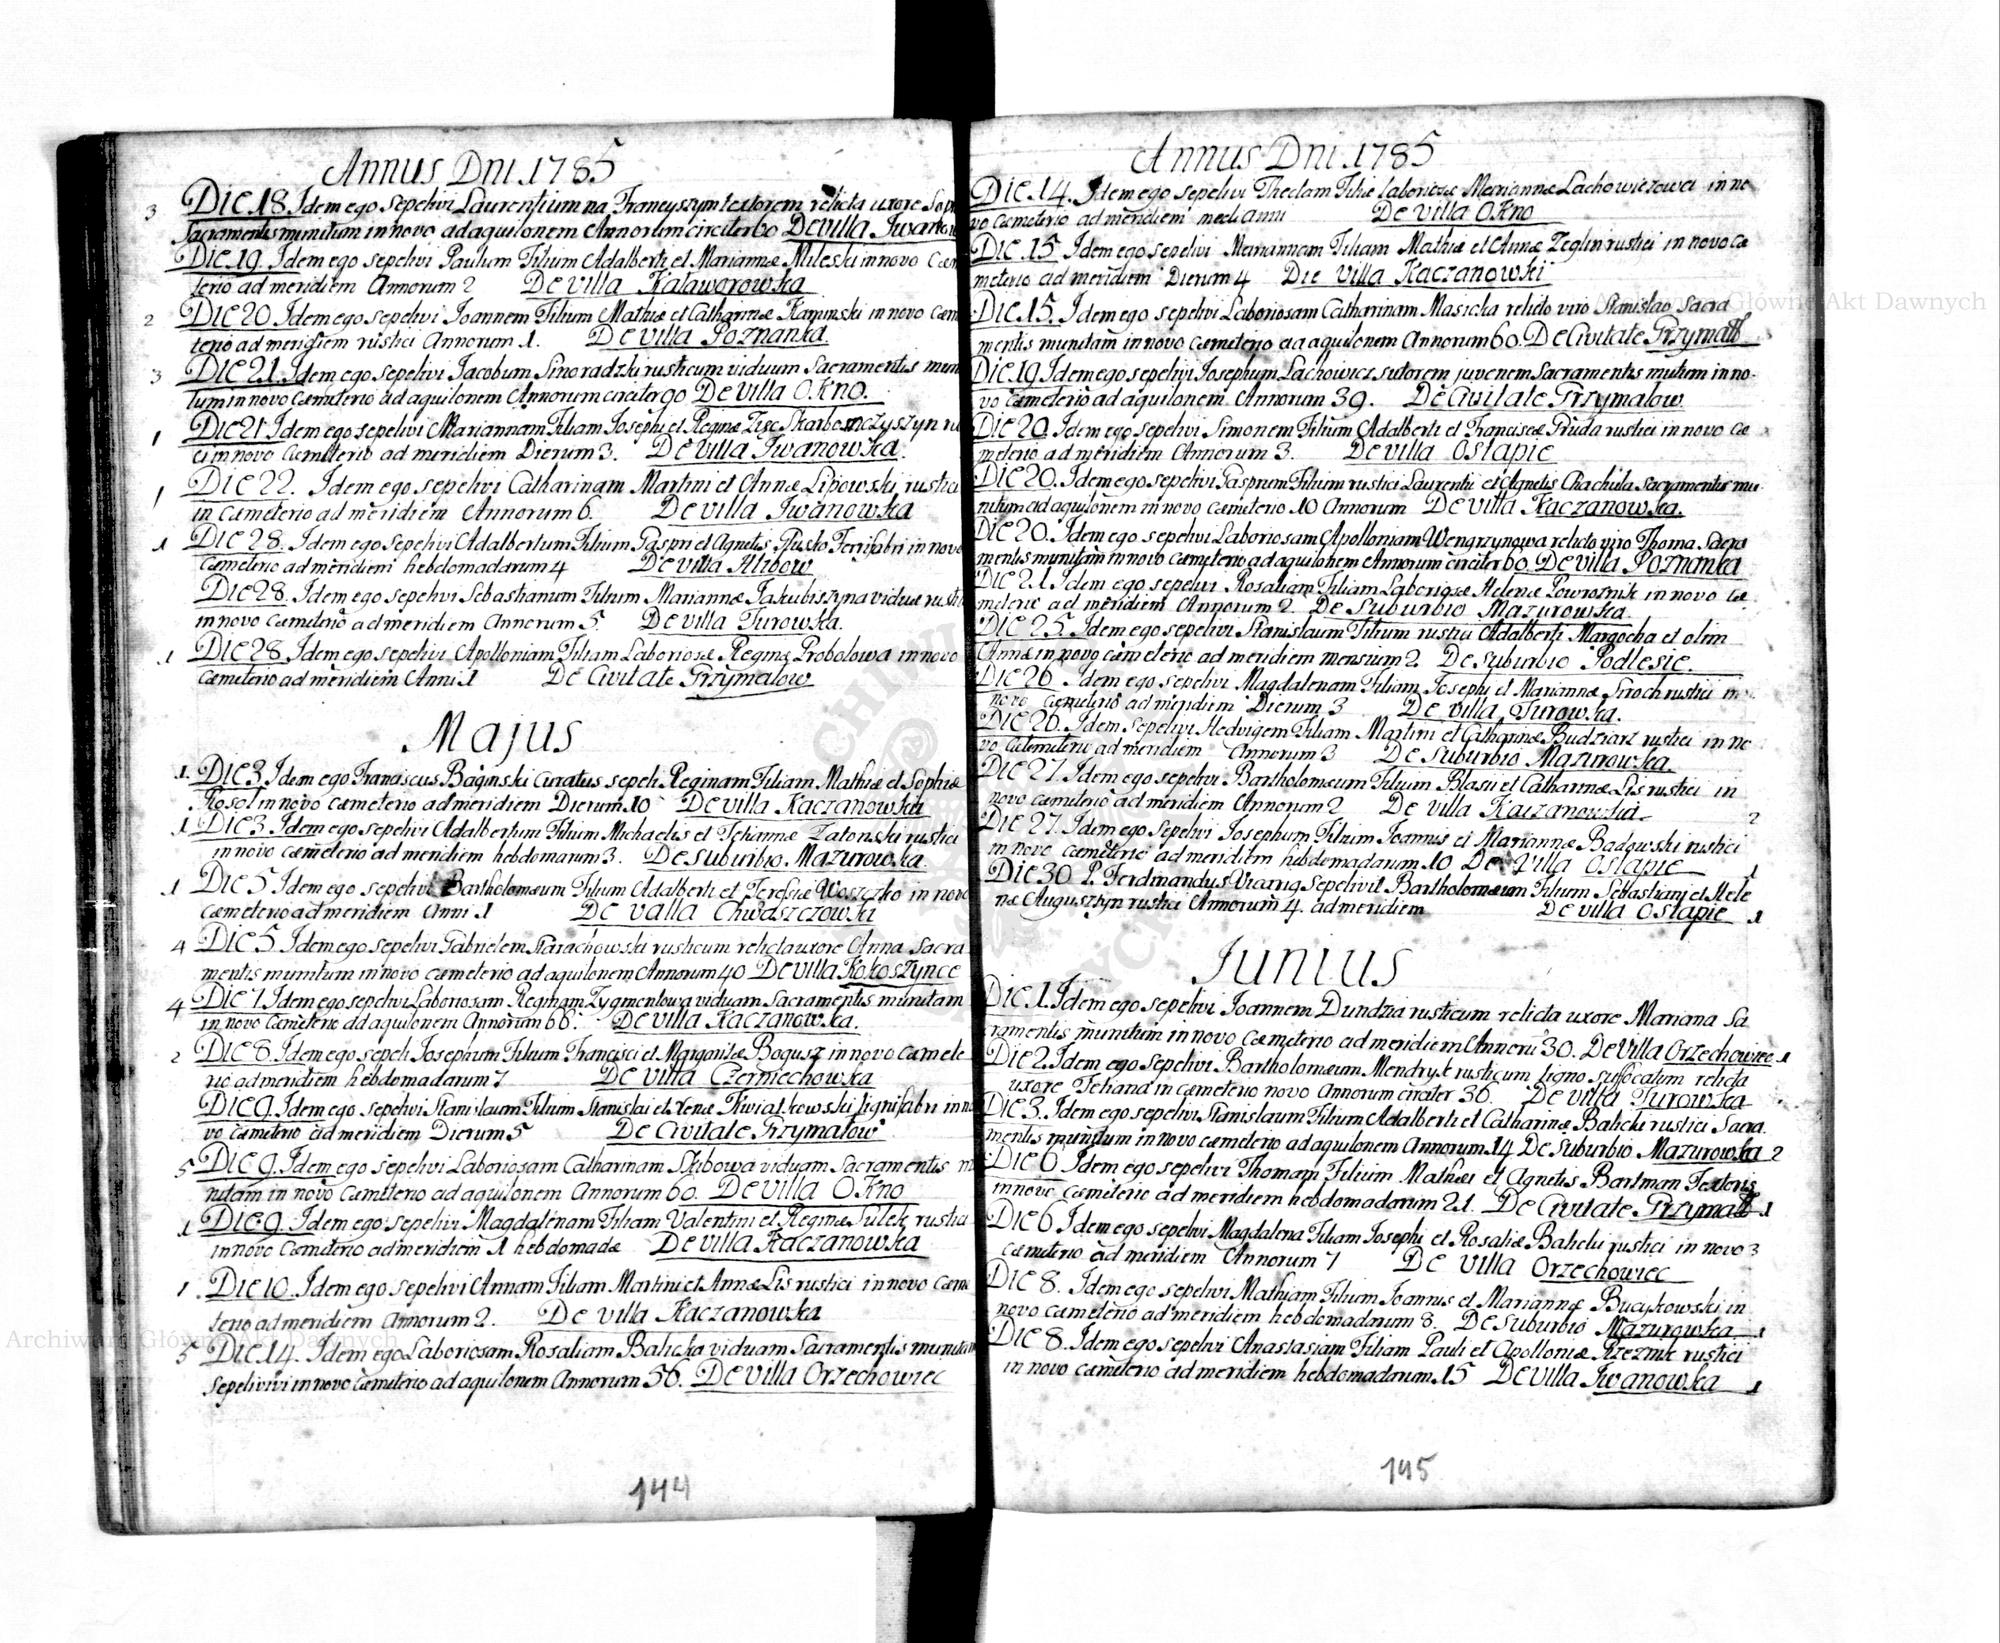 Annus Dni 1785
3 Die 18. Idem ego sepelivi Laurentium na Francyszym textorem relicta uxore
Sacramentis munitum in novo ad aquilonem Annorum circiter 60 De villa Iwanow
Die 19. Idem ego sepelivi Paulum Filium Adalberti et Mariannæ Mileski in novo Cæm
terio ad meridiem Annorum 2 De villa Kaławorowska
2 Die 20. Idem ego sepelivi Joannem Filium Mathiæ et Catharinæ Kaminski in novo Cæm
terio ad meridiem rustici Annorum 1. De villa Poznanka.
3 Die 21. Idem ego sepelivi Jacobum Sinoradzki rusticum viduum Sacramentis muni
tum in novo Cæmeterio ad aquilonem Annorum circiter 90 De villa Okno.
1 Die 21 Idem ego sepelivi Mariannam Filiam Josephi et Reginæ
ci in novo Cæmeterio ad meridiem Dierum 3. De villa Iwanowka.
1 Die 22. Idem ego sepelivi Catharinam Martini et Annæ Lipowski rustici
in Cæmeterio ad meridiem Annorum 6. De villa Iwanowka
1 Die 28. Idem ego sepelivi Adalbertum Filium Gaspri et Agnetis Ferrifabri in novo
Cæmeterio ad meridiem hebdomadarum 4 De villa
Die 28. Idem ego sepelivi Sebastianum Filium Mariannæ Jakubiszyna viduæ rusti
in novo Cæmeterio ad meridiem Annorum 5. De villa Turowka.
1 Die 28. Idem ego sepelivi Apolloniam Filiam Laboriosæ Reginæ Probolowa in novo
Cæmeterio ad meridiem Anni 1 De Civitate Grzymalow
Majus
1. Die 3. Idem ego Franciscus Baginski Curatus sepeli Reginam Filiam Mathiæ et Sophiæ
Rosoł in novo cæmeterio ad meridiem Dierum 10 De villa Kaczanowka
1 Die 3. Idem ego sepelivi Adalbertum Filium Michaelis et Tetiannæ Zatonski rustici
in novo Cæmeterio ad meridiem hebdomarum 3. De suburbio Mazurowka.
1 Die 5 Idem ego sepelivi Bartholomæum Filium Adalberti et Teresiæ Woszczko in novo
Cæmeterio ad meridiem Anni 1 De valla Chwaszczowki
4 Die 5. Idem ego sepelivi Gabrielem Starachowski rusticum relicta uxore Anna Sacra
mentis munitum in novo cæmeterio ad aquilonem Annorum 40 De villa Kokoszynce
4 Die 7. Idem ego sepelivi Laboriosam Reginam Zygmontowa viduam Sacramentis munitam
in novo Cæmeterio ad aquilonem Annorum 66. De villa Kaczanowka.
2 Die 8. Idem ego sepeli Josephum Filium Francisci et Margaritæ Bogusz in novo Cæmete
rio ad meridiem hebdomadarum 7 De villa Czerniechowka
Die 9. Idem ego sepelivi Stanislaum Filium Stanislai et Xeniæ Kwiatkowski lignifabri in no
vo Cæmeterio ad meridiem Dierum 5 De Civitate Grzymałow
5 Die 9. Idem ego sepelivi Laboriosam Catharinam Skibowa viduam Sacramentis mu
nitam in novo Cæmeterio ad aquilonem Annorum 60. De villa Okno
1 Die 9. Idem ego sepelivi Magdalenam Filiam Valentini et Reginæ Sulek rustici
in novo Cæmeterio ad meridiem 1 hebdomadæ De villa Kaczanowka
1 Die 10. Idem ego sepelivi Annam Filiam Martini et Annæ Lis rustici in novo Cæme
terio ad meridiem Annorum 2. De villa Kaczanowka
5 Die 14. Idem ego Laboriosam Rosaliam Balicka viduam Sacramentis munitam
Sepelivivi in novo Cæmeterio ad aquilonem Annorum 56. De villa Orzechowiec
144
Annus Dni 1785
Die 14. Idem ego sepelivi Theclam Filiæ laboriozæ Mariannæ Lachowiczowei in no
vo Cæmeterio ad meridiem medi anni De villa Okno
Die 15 Idem ego sepelivi Mariannam Filiam Mathiæ et Annæ Zeglin rustici in novo Cæ
meterio ad meridiem Dierum 4 Die villa Kaczanowki
Die 15. Idem ego sepelivi Laboriosam Catharinam Masicka relicto viro Stanislao Sacra
mentis munitam in novo cæmeterio ad aquilonem Annorum 60. De Civitate Grzymał
Die 19 Idem ego sepelivi Josephum Lachowicz sutorem juvenem Sacramentis mutum in no-
vo Cæmeterio ad aquilonem Annorum 39. De Civitate Grzymalow.
Die 20. Idem ego sepelivi Simonem Filium Adalberti et Franciscæ Pruda rustici in novo Cæ
meterio ad meridiem Annorum 3. De villa Ostapie
Die 20. Idem ego sepelivi Gasprum Filium rustici Laurentii et Agnetis Chachula Sacramentis mu-
nitum ad aquilonem in novo cæmeterio 10 Annorum De villa Kaczanowka.
Die 20. Idem ego sepelivi Laboriosam Apolloniam Wengrzynowa relicto viro Thoma Sacra
mentis munitam in novo cæmeterio ad aquilonem Annorum circiter 60. De villa Poznanka
Die 21. Idem ego sepelivi Rosaliam Filiam Laboriosæ Helenæ Powroznik in novo Cæ
meterio ad meridiem Annorum 2. De Suburbio Mazurowka.
Die 25. Idem ego sepelivi Stanislaum Filium rustici Adalberti Margocha et olim
Annæ in novo cæmeterio ad meridiem mensium 2 De suburbio Podlesie.
Die 26 Idem ego sepelivi Magdalenam Filiam Josephi et Mariannæ Siroch rustici in
novo cæmeterio ad meridiem Dierum 3 De villa Turowka.
Die 26. Idem sepelivi Hedvigem Filiam Martini et Catharinæ Budziarz rustici in no
vo Cæmeterio ad meridiem Annorum 3 De suburbio Mazurowka.
Die 27. Idem ego sepelivi Bartholomæum Filium Blasii et Catharinæ Lis rustici in
novo cæmeterio ad meridiem Annorum 2 De villa Kaczanowka 2
Die 27. Idem ego sepelivi Josephum Filium Joannis et Mariannæ Badowski rustici
in novo Cæmeterio ad meridiem hebdomadarum 10 De Villa Ostapie 1
Die 30 P. Ferdinandus Vicarius Sepelivit Bartholomæum Filium Sebastiani et Hele
næ Augusztyn rustici Annorum 4. ad meridiem De villa Ostapie 1
Junius
Die 1. Idem ego sepelivi Joannem Dundzia rusticum relicta uxore Mariana Sa
cramentis munitum in novo Cæmeterio ad meridiem Annoru 30. De villa Orzechowiec 1
Die 2. Idem ego sepelivi Bartholomæum Mendryk rusticum ligno suffocatum relicta
uxore Tetiana in Cæmeterio novo Annorum circiter 36. De villa Turowka
Die 3. Idem ego sepelivi Stanislaum Filium Adalberti et Catharinæ Balicki rustici Sacra
mentis munitum in novo cæmeterio ad aquilonem Annorum 14 De suburbio Mazurowka 2
Die 6 Idem ego sepelivi Thomam Filium Mathæi et Agnetis Bartman Textoris
in novo Cæmeterio ad meridiem hebdomadarum 21. De Civitate Grzymał 1
Die 6 Idem ego sepelivi Magdalena Filiam Josephi et Rosaliæ Balicki rustici in novo 3
Cæmeterio ad meridiem Annorum 7 De villa Orzechowiec
Die 8. Idem ego sepelivi Mathiam Filium Joannis et Mariannæ Bucykowski in
novo cæmeterio ad meridiem hebdomadarum 8. De suburbio Mazurowka 1
Die 8. Idem ego sepelivi Anastasiam Filiam Pauli et Apolloniæ Rzeznik rustici
in novo Cæmeterio ad meridiem hebdomadarum 15 De villa Iwanowka 1
145
Archiwum Główne Akt Dawnych
Archiwum Główne Akt Dawnych